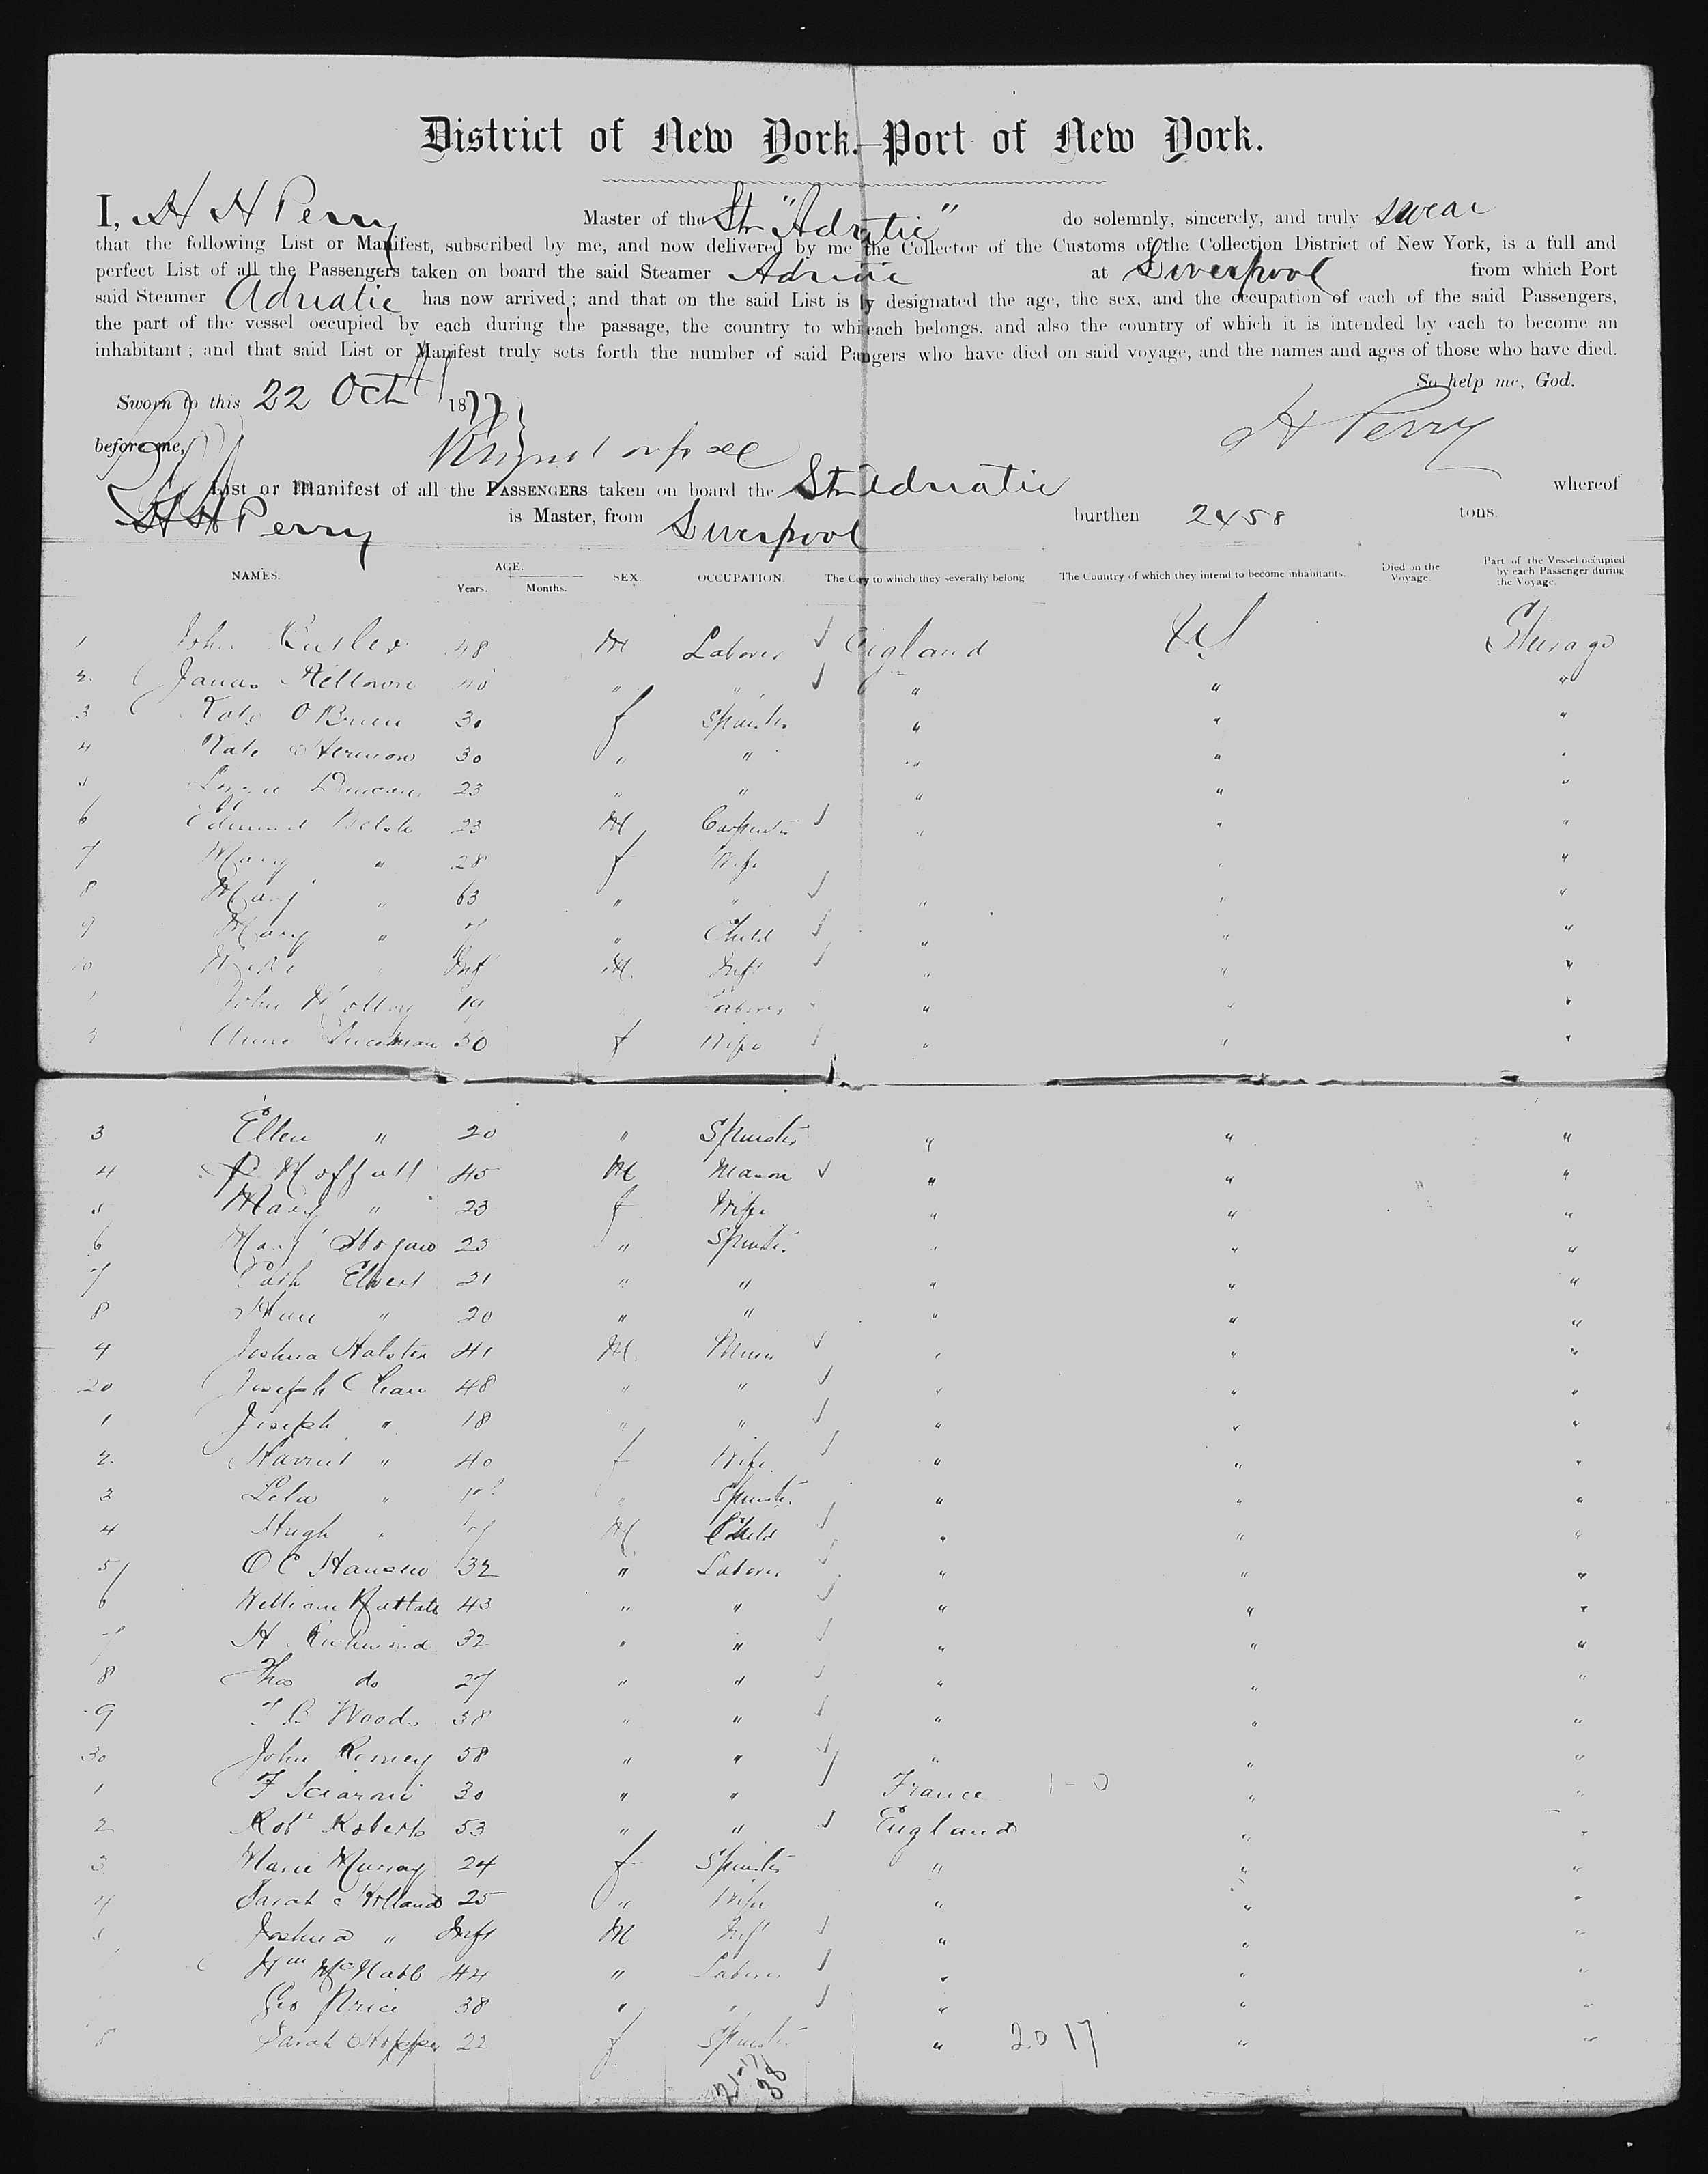 District of New York.—Port of New York.
I, H H Perry Master of the Str "Adriatic" do solemnly, sincerely, and truly swear
that the following List or Manifest, subscribed by me, and now delivered by me the Collector of the Customs of the Collection District of New York, is a full and
perfect List of all the Passengers taken on board the said Steamer Adriatic at Liverpool from which Port
said Steamer Adriatic has now arrived; and that on the said List is ly designated the age, the sex, and the occupation of each of the said Passengers,
the part of the vessel occupied by each during the passage, the country to whi each belongs, and also the country of which it is intended by each to become an
inhabitant; and that said List or Manifest truly sets forth the number of said Pa ngers who have died on said voyage, and the names and ages of those who have died.
So help me, God.
Sworn to this 22 Oct 1877
before me, H Perry
List or Manifest of all the PASSENGERS taken on board the Str Adriatic whereof
H H Perry is Master, from Liverpool burthen 2458 tons
NAMES. AGE. Years. Months. SEX. OCCUPATION. The Co y to which they severally belong The Country of which they intend to become inhabitants. Died on the Voyage. Part of the Vessel occupied by each Passenger during the Voyage.
1 John Butler 48 M Laborer England US Steerage
2 James 40 " " " " "
3 Kate O Brien 30 f Spinster " " "
4 Kate 30 " " " " "
5 Duncan 23 " " " " "
6 Edmund Welsh 23 M Carpenter " " "
7 Mary " 28 f Wife " "
8 Mary " 63 " " " " "
9 Mary " 7 " Child " " "
10 " Inf M Inft " " "
1 John 19 " Laborer " " "
2 Anne 50 f Wife " " "
3 Ellen " 20 " Spinster " " "
4 P Moffatt 45 M Mason " " "
5 Mary " 23 f Wife " " "
6 Mary Hogan 23 " Spinster " " "
7 Cath 21 " " " " "
8 " 20 " " " " "
9 Joshua Halsten 41 M Miner " " "
20 Joseph 48 " " " " "
1 Joseph " 18 " " " " "
2 Harriet " 40 f Wife " " "
3 Lela " " Spinster " " "
4 Hugh " 7 M Child " " "
5 O C Hansen 32 " Laborer " " "
6 William 43 " " " " "
7 H Richmond 32 " " " " "
8 Thos do 27 " " " " "
9 J B Woods 38 " " " " "
30 John 58 " " " " "
1 F 30 " " France 1-0 " "
2 Robt Roberts 53 " " England " "
3 Marie Murray 24 f Spinster " " "
4 Sarah C Holland 25 " Wife " " "
5 Joshua " Inft M Inft " " "
Wm McNabb 44 " Laborer " " "
Geo Price 38 " " " " "
8 Sarah Hopper 22 f Spinster " 20 17 " "
21-17
38